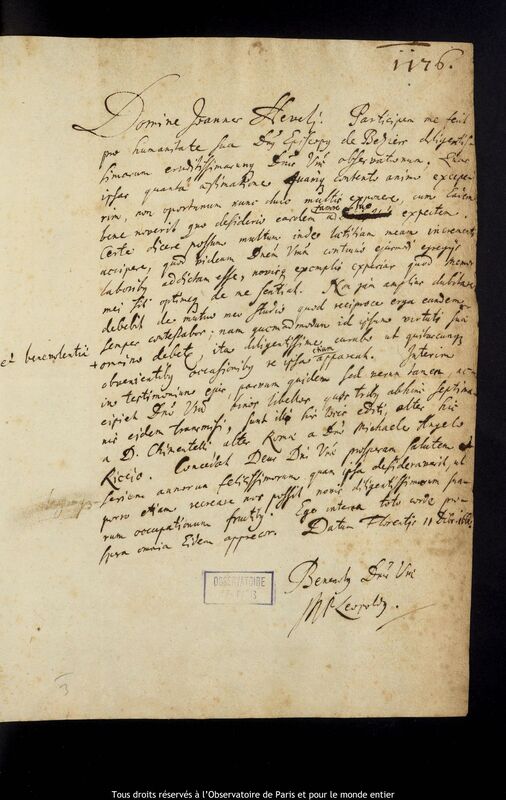 1176.
Domine Joannes Hevelj. Participem me fecit
pro humanitate sua Dn͂s Episcopus de Beziers diligentis-
simarum eruditissimarumq Dn͂is Vr͂æ observationum. Quas
ipsas quanta æstimatione quamq contento animo excepe-
rim, non oportunum nunc duco multis exponere, cum satis
bene noverit quo desiderio easdem a tanto tempore expectem.
Certe dicere possum multum inde lætitiam meam incrementi
accipere, quod videam Dn͂em Vr͂am continuo ejusmodi egregijs
laboribus addictam esse, novisq exemplis experiar quod memor
mei sit optimeq de me sentiat. Non jam amplius dubitare
debebit de mutuo meo studio quod reciproce erga eandem
semper contestabor; nam quemadmodum id ipsum virtuti suæ
et benevolentiæ
+ omnino debeo, ita diligentissime curabo ut quibuscunq
obvenientibus occasionibus re ipsa etiam appareat. Interim
in testimonium ejus, parvum quidem sed verum tamen, ac-
cipiet Dn͂o Vr͂a binos libellos quos tribus abhinc septima-
nis eidem transmisi, sunt illi hic loco editi, alter hic
a D. Chimentelli alter Romæ a Dn͂o Michaele Angelo
Riccio. Concedat Deus Dn͂i Vr͂æ prosperam salutem et
seriem annorum felicissimorum quam ipse desideraverit, ut
porro etiam recreare nos possit novis diligentissimarum sua-
rum occupationum fructibus. Ego interea toto corde pro-
spera omnia Eidem apprecor. Datum Florentiæ 11 Dec. 1666
Benevolus Dn͂is Vr͂æ
Leopoldus.
OBSERVATOIRE
DE PARIS
3
Tous droits réservés à l'Observatoire de Paris et pour le monde entier